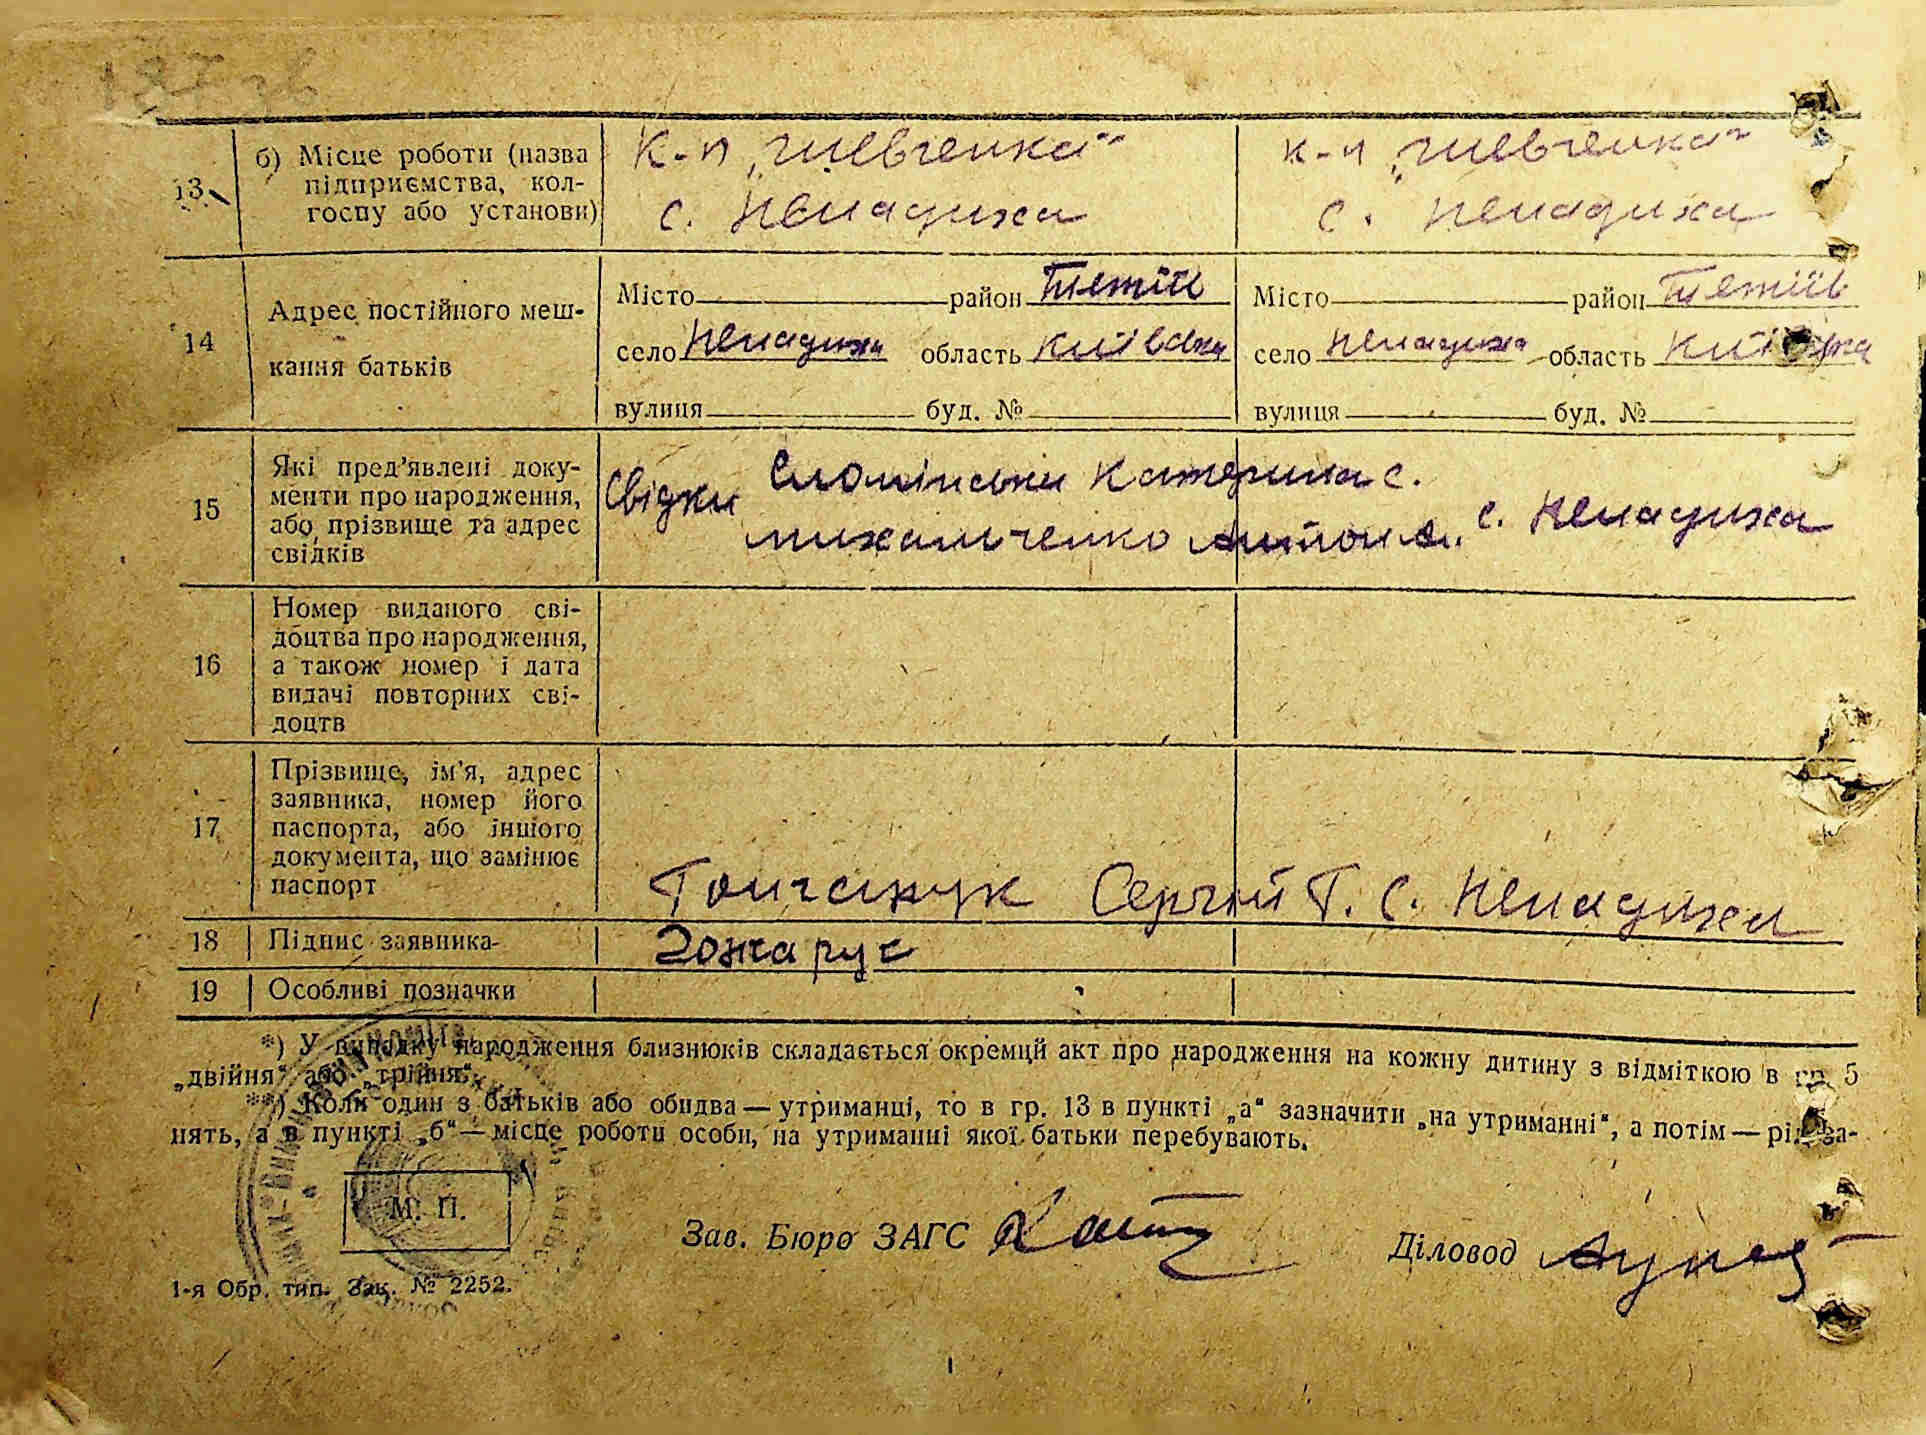 б) Місце роботи (назва
К-п „Шевченка“
к-п „Шевченка“
13
підприємства, кол-
госпу або установи)
с. Ненадиха
с. Ненадиха
14
Адрес постійного меш-
кання батьків
Місто район Тетіїв
Місто район Тетіїв
село Ненадиха область Київська
село Ненадиха область Київська
вулиця буд. №
вулиця буд. №
15
Які пред’явлені доку-
менти про народження,
або прізвище та адрес
свідків
Свідки
Сломінська Катерина С.
Михальченко Антон А. с. Ненадиха
16
Номер виданого сві-
доцтва про народження,
а також номер і дата
видачі повторних сві-
доцтв
17
Прізвище, ім’я, адрес
заявника, номер його
паспорта, або іншого
документа, що замінює
паспорт
Гончарук Сергій Г. с. Ненадиха
18 Підпис заявника
19 Особливі позначки
*) У випадку народження близнюків складається окремий акт про народження на кожну дитину з відміткою в гр. 5
„двійня“ або „трійня“.
**) Коли один з батьків або обидва — утриманці, то в гр. 13 в пункті „а“ зазначити „на утриманні“, а потім — рід за-
нять, а в пункті „б“ — місце роботи особи, на утриманні якої батьки перебувають.
М. П.
Зав. Бюро ЗАГС
Діловод
1-я Обр. тип. Зак. № 2252.